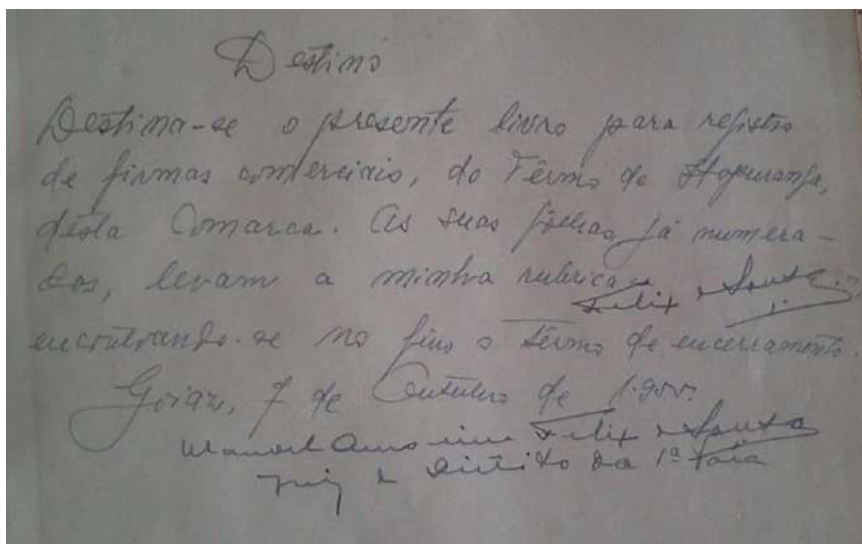 Destino
Destina-se o presente livro para registro
de firmas comerciais, do Têrmo de Itapuranga,
desta Comarca. As suas fôlhas, já numera-
das, levam a minha rubrica
Felix de Souza
encontrando-se no fim o têrmo de encerramento.
Goiaz, 7 de Outubro de
Manoel Amorim Felix de Souza
Juiz de Direito da 1ª Vara